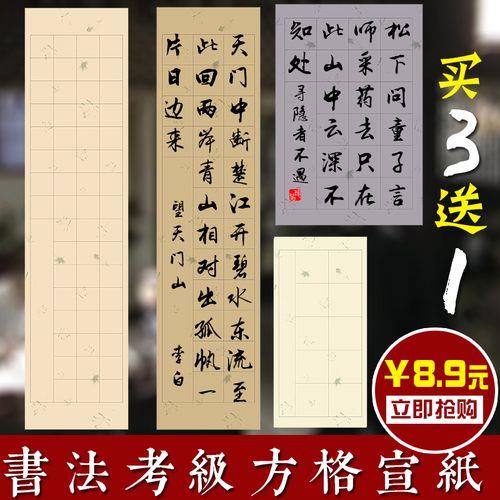 天门中断楚江开碧水东流至
此回两岸青山相对出孤帆一
片日边来
望天门山
李白
松下问童子言
师采药去只在
此山中云深不
知处
寻隐者不遇
买3送1
¥8.9元
立即抢购
書法考級方格宣紙